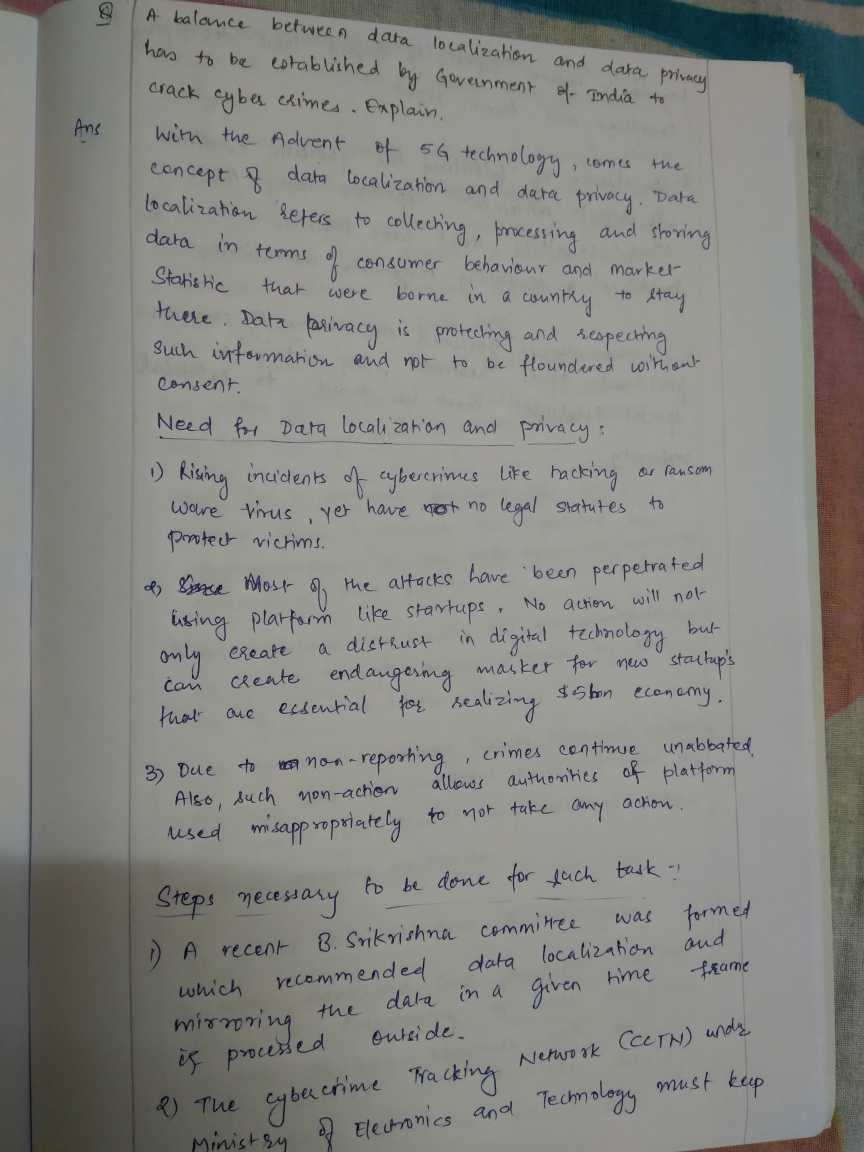 Q A balance between data localization and data privacy
has to be established by Government of India to
crack cyber crimes. Explain.
Ans With the Advent of 5G technology, comes the
concept of data localization and data privacy. Data
localization refers to collecting, processing and storing
data in terms of consumer behaviour and market
Statistic that were borne in a country to stay
there. Data privacy is protecting and respecting
such information and not to be floundered without
consent.
Need for Data localization and privacy:
1) Rising incidents of cybercrimes like hacking or ransom
ware virus, yet have no legal statutes to
protect victims.
2) Most of the attacks have been perpetrated
using platform like startups. No action will not
only create a distrust in digital technology but
can create endangering market for new startup's
that are essential for realizing $5bn economy.
3) Due to non-reporting, crimes continue unabbated.
Also, such non-action allows authorities of platform
used misappropriately to not take any action.
Steps necessary to be done for such task -:
1) A recent B. Srikrishna committee was formed
which recommended data localization and
mirroring the data in a given time frame
if processed outside.
2) The cybercrime Tracking Network (CCTN) under
Ministry of Electronics and Technology must keep